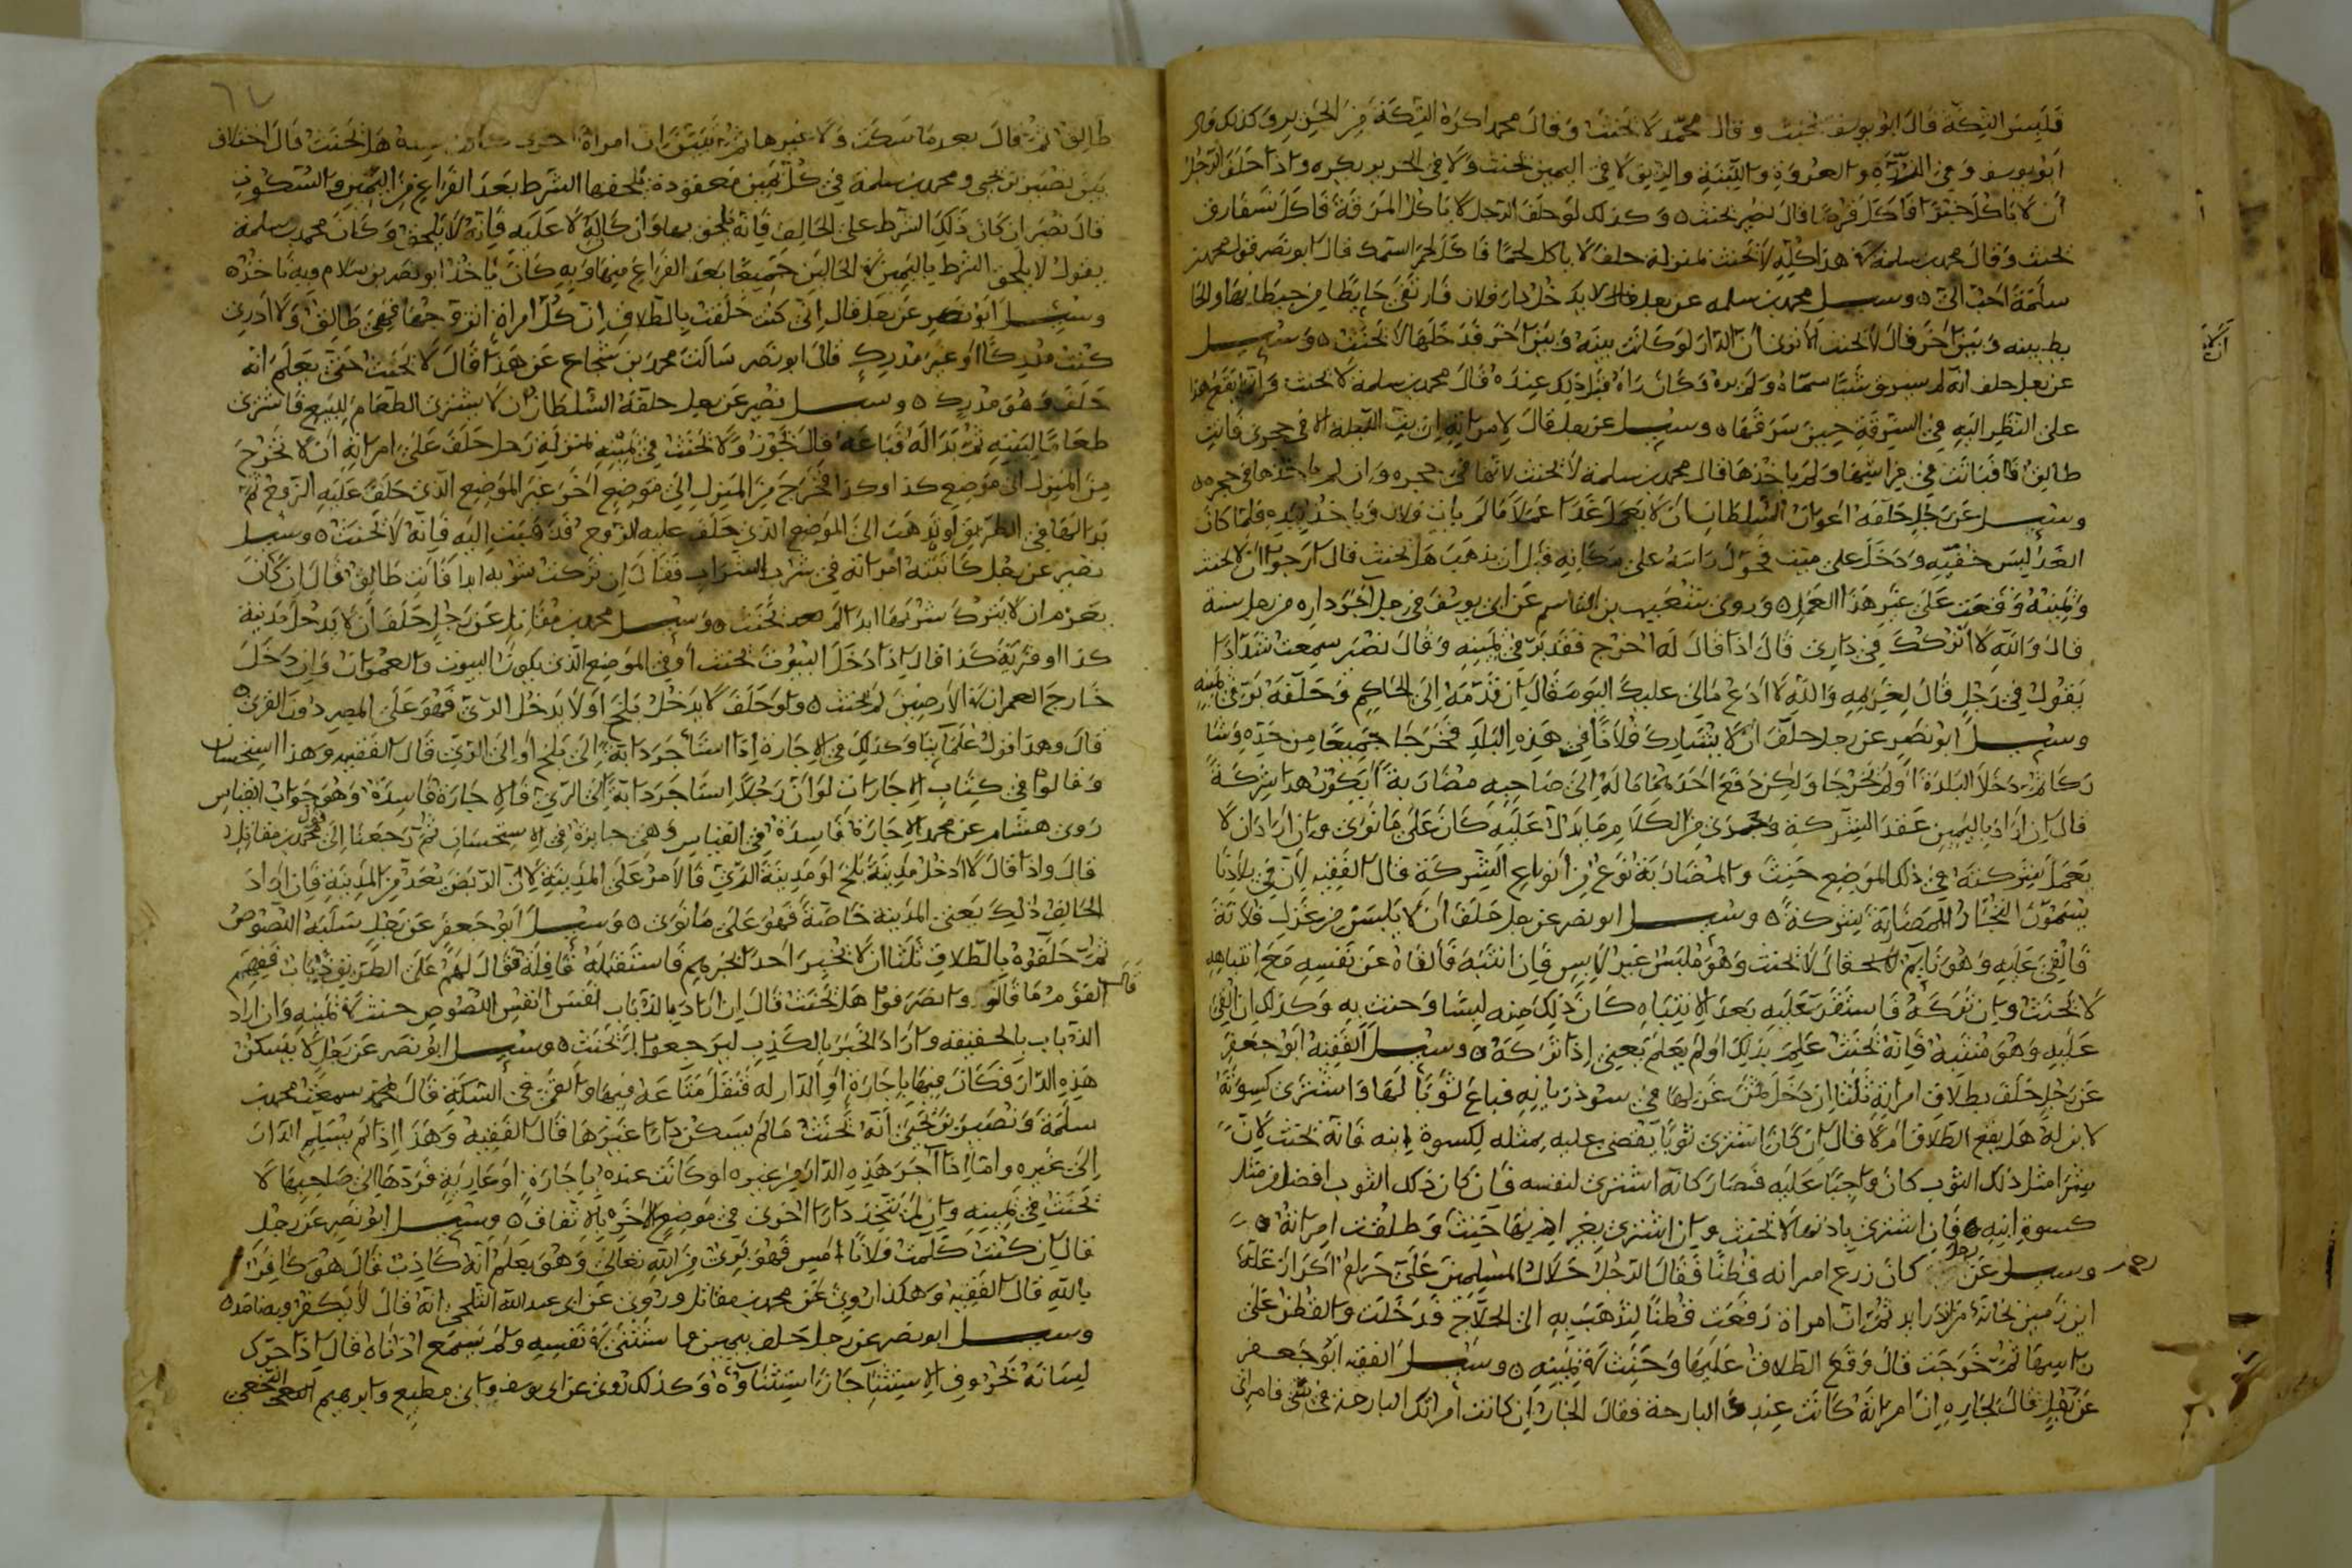 فلبس التكة قال ابو يوسف يحنث وقال محمد لا يحنث وقال محمد اكره التكة من الحرير وكذلك قال
ابو يوسف وفي الزرة والعروة واللبنة والزيق لا في اليمين يحنث ولا في الحرير يكره واذا حلف الرجل
ان لا ياكل خبزا فاكل قرصا قال نصير يحنث وكذلك لو حلف الرجل لا ياكل المرقة فاكل
يحنث وقال محمد بن سلمة في هذا كله لا يحنث بمنزلة حلف لا ياكل لحما فاكل لحم السمك قال ابو نصر قول محمد بن
سلمة احب الي وسيل محمد بن سلمه عن رجل قال لا يدخل دار فلان فارتقى حايطا من حيطانها والحا
يط بينه وبين اخر قال لا يحنث الا ترى ان الدار لو كانت بينه وبين اخر فدخلها لا يحنث وسيل
عن رجل حلف انه لم يسرق شيا سماه ولم يره وكان راه قبل ذلك عنده قال محمد بن سلمة لا يحنث وانما يقع هذا
على النظر اليه في السرقة حين سرقها وسيل عن رجل قال لامراته ان بت الليلة الا في حجري فانت
طالق فباتت في فراشها ولم ياخذها قال محمد بن سلمة لا يحنث لانها في حجره وان لم ياخذها في حجره
وسيل عن رجل حلفه اعوان السلطان ان لا يعمل غدا عملا ما لم يات فلان وياخذ بيده فلما كان
الغد لبس خفيه ودخل على ميت فحول راسه على مكانه قبل ان يذهب هل يحنث قال ارجوا ان لا يحنث
ويمينه وقعت على غير هذا العمل وروى شعيب بن القاسم عن ابي يوسف في رجل آجر داره من رجل سنة
قال والله لا اتركك في داري قال اذا قال له اخرج فقد بر في يمينه وقال نصر سمعت شدادا
يقول في رجل قال لغريمه والله لا ادع مالي عليك اليوم قال ان قدمه الى الحاكم وحلفه بر في يمينه
وسيل ابو نصر عن رجل حلف ان لا يشارك فلانا في هذه البلد فخرجا جميعا من حده وشا
ركا ثم دخلا البلدة او لم يخرجا ولكن دفع احدهما ماله الى صاحبه مضاربة ايكون هذا شركة
قال ان اراد باليمين عقد الشركة وجرى من الكلام ما يدل عليه كان على ما نوى وان اراد ان لا
يعمل بشركته في ذلك الموضع حنث والمضاربة نوع من انواع الشركة قال الفقيه لان في بلادنا
يسمون التجار المضاربة شركة وسيل ابو نصر عن رجل حلف ان لا يلبس من غزل فلانة
فالقي عليه وهو نايم قال لا يحنث وهو ملبس غير لابس فان انتبه فالقاه عن نفسه مع انتباهه
لا يحنث وان تركه فاستقر عليه بعد الانتباه كان ذلك منه لبسا وحنث به وكذلك ان القي
عليه وهو منتبه فانه يحنث علم بذلك او لم يعلم يعني اذا تركه وسيل الفقيه ابو جعفر
عن رجل حلف بطلاق امراته ثلثا ان دخل ثمن غزلها في سوذريانه فباع ثوبا لها واشترى كسوة
لابن له هل يقع الطلاق ام لا قال ان كان اشترى ثوبا يقضى عليه بمثله لكسوة ابنه فانه يحنث لان
شرا مثل ذلك الثوب كان واجبا عليه فصار كانه اشترى لنفسه فان كان ذلك الثوب افضل من مثل
كسوة ابنه فان اشترى باذنها لا يحنث وان اشترى بغير اذنها حنث وطلقت امراته
وسيل عن رجل كان زرع امراته قطنا فقال الرجل حلال المسلمين علي حرام اكر از غلة
اين زمين بخانه من اندر ايد ثم ان امراة رفعت قطنا لتذهب به الى الحلاج فدخلت والقطن على
راسها ثم خرجت قال وقع الطلاق عليها وحنث في يمينه وسيل الفقيه ابو جعفر
عن رجل قال لجاره ان امراته كانت عندي البارحة فقال الجار ان كانت امراتك البارحة في بيتي فامراتي
طالق ثم قال بعد ما سكت ولا غيرها ثم تبين ان امراة اخرى كانت هل يحنث قال اختلاف
بين نصير بن يحيى ومحمد بن سلمة في كل يمين معقودة يلحقها الشرط بعد الفراغ من اليمين والسكوت
قال نصير ان كان ذلك الشرط على الحالف فانه يلحق بها وان كان له لا عليه فانه لا يلحق وكان محمد بن سلمة
يقول لا يلحق الشرط باليمين في الحالين جميعا بعد الفراغ منها وبه كان ياخذ ابو نصر بن سلام وبه ناخذ
وسيل ابو نصر عن رجل قال اني كنت حلفت بالطلاق ان كل امراة اتزوجها فهي طالق ولا ادري
كنت مدركا او غير مدرك قال ابو نصر سالت محمد بن شجاع عن هذا قال لا يحنث حتى يعلم انه
حلف وهو مدرك وسيل نصير عن رجل حلفه السلطان ان لا يشتري الطعام للبيع فاشترى
طعاما لبيته ثم بدا له فباعه قال يجوز ولا يحنث في يمينه بمنزلة رجل حلف على امراته ان لا تخرج
من المنزل الى موضع كذا وكذا فخرج من المنزل الى موضع اخر غير الموضع الذي حلف عليه الزوج ثم
بدا لها في الطريق ان تذهب الى الموضع الذي حلف عليه الزوج فذهبت اليه فانه لا يحنث وسيل
نصير عن رجل عاتبته امراته في شرب الشراب فقال ان تركت شربه ابدا فانت طالق قال ان كان
يعزم ان لا يترك شربها ابدا لم يحنث وسيل محمد بن مقاتل عن رجل حلف ان لا يدخل مدينة
كذا او قرية كذا قال اذا دخل البيوت يحنث او في الموضع الذي يكون البيوت والعمران وان دخل
خارج العمران في الارضين لم يحنث ولو حلف لا يدخل بلخ او لا يدخل الري فهو على المصر دون القرى
قال وهذا قول علماينا وكذلك في الاجارة اذا استاجر دابة الى بلخ او الى الري قال الفقيه وهذا استحسان
وقالوا في كتاب الاجارات لو ان رجلا استاجر دابة الى الري فالاجارة فاسدة وهو جواب القياس
روى هشام عن محمد الاجارة فاسدة في القياس وهي جايزة في الاستحسان ثم رجعنا الى قول محمد بن مقاتل
قال واذا قال لا ادخل مدينة بلخ او مدينة الري فالامر على المدينة لان الربض يعد من المدينة فان اراد
الحالف ذلك يعني المدينة خاصة فهو على ما نوى وسيل ابو جعفر عن رجل سلبه اللصوص
ثم حلفوه بالطلاق ثلثا ان لا يخبر احدا بخبرهم فاستقبله قافلة فقال لهم على الطريق ذياب ففهم
القوم ما قال وانصرفوا هل يحنث قال ان اراد بالذياب نفس انفس اللصوص حنث في يمينه وان اراد
الذياب بالحقيقه واراد الخبر بالكذب ليرجعوا لم يحنث وسيل ابو نصر عن رجل لا يسكن
هذه الدار فكان فيها باجارة او الدار له فنقل متاعه منها والقى في السكة قال محمد سمعت محمد بن
سلمة ونصير بن يحيى انه يحنث ما لم يسكن دارا غيرها قال الفقيه وهذا اذا لم يسلم الدار
الى غيره واما اذا آجر هذه الدار من غيره او كانت عنده باجارة او عارية فردها الى صاحبها لا
يحنث في يمينه وان لم يتخذ دارا اخرى في موضع اخر بالاتفاق وسيل ابو نصر عن رجل
قال ان كنت كلمت فلانا امس فهو بري من الله تعالى وهو يعلم انه كاذب قال هو كافر
بالله قال الفقيه وهكذا روي عن محمد بن مقاتل وروي عن ابي عبد الله الثلجي انه قال لا يكفر وبه ناخذ
وسيل ابو نصر عن رجل حلف بيمين فاستثنى في نفسه ولم يسمع اذناه قال اذا حرك
لسانه بحروف الاستثنا جاز استثناوه وكذلك روي عن ابي يوسف وابي مطيع وابرهيم النخعي